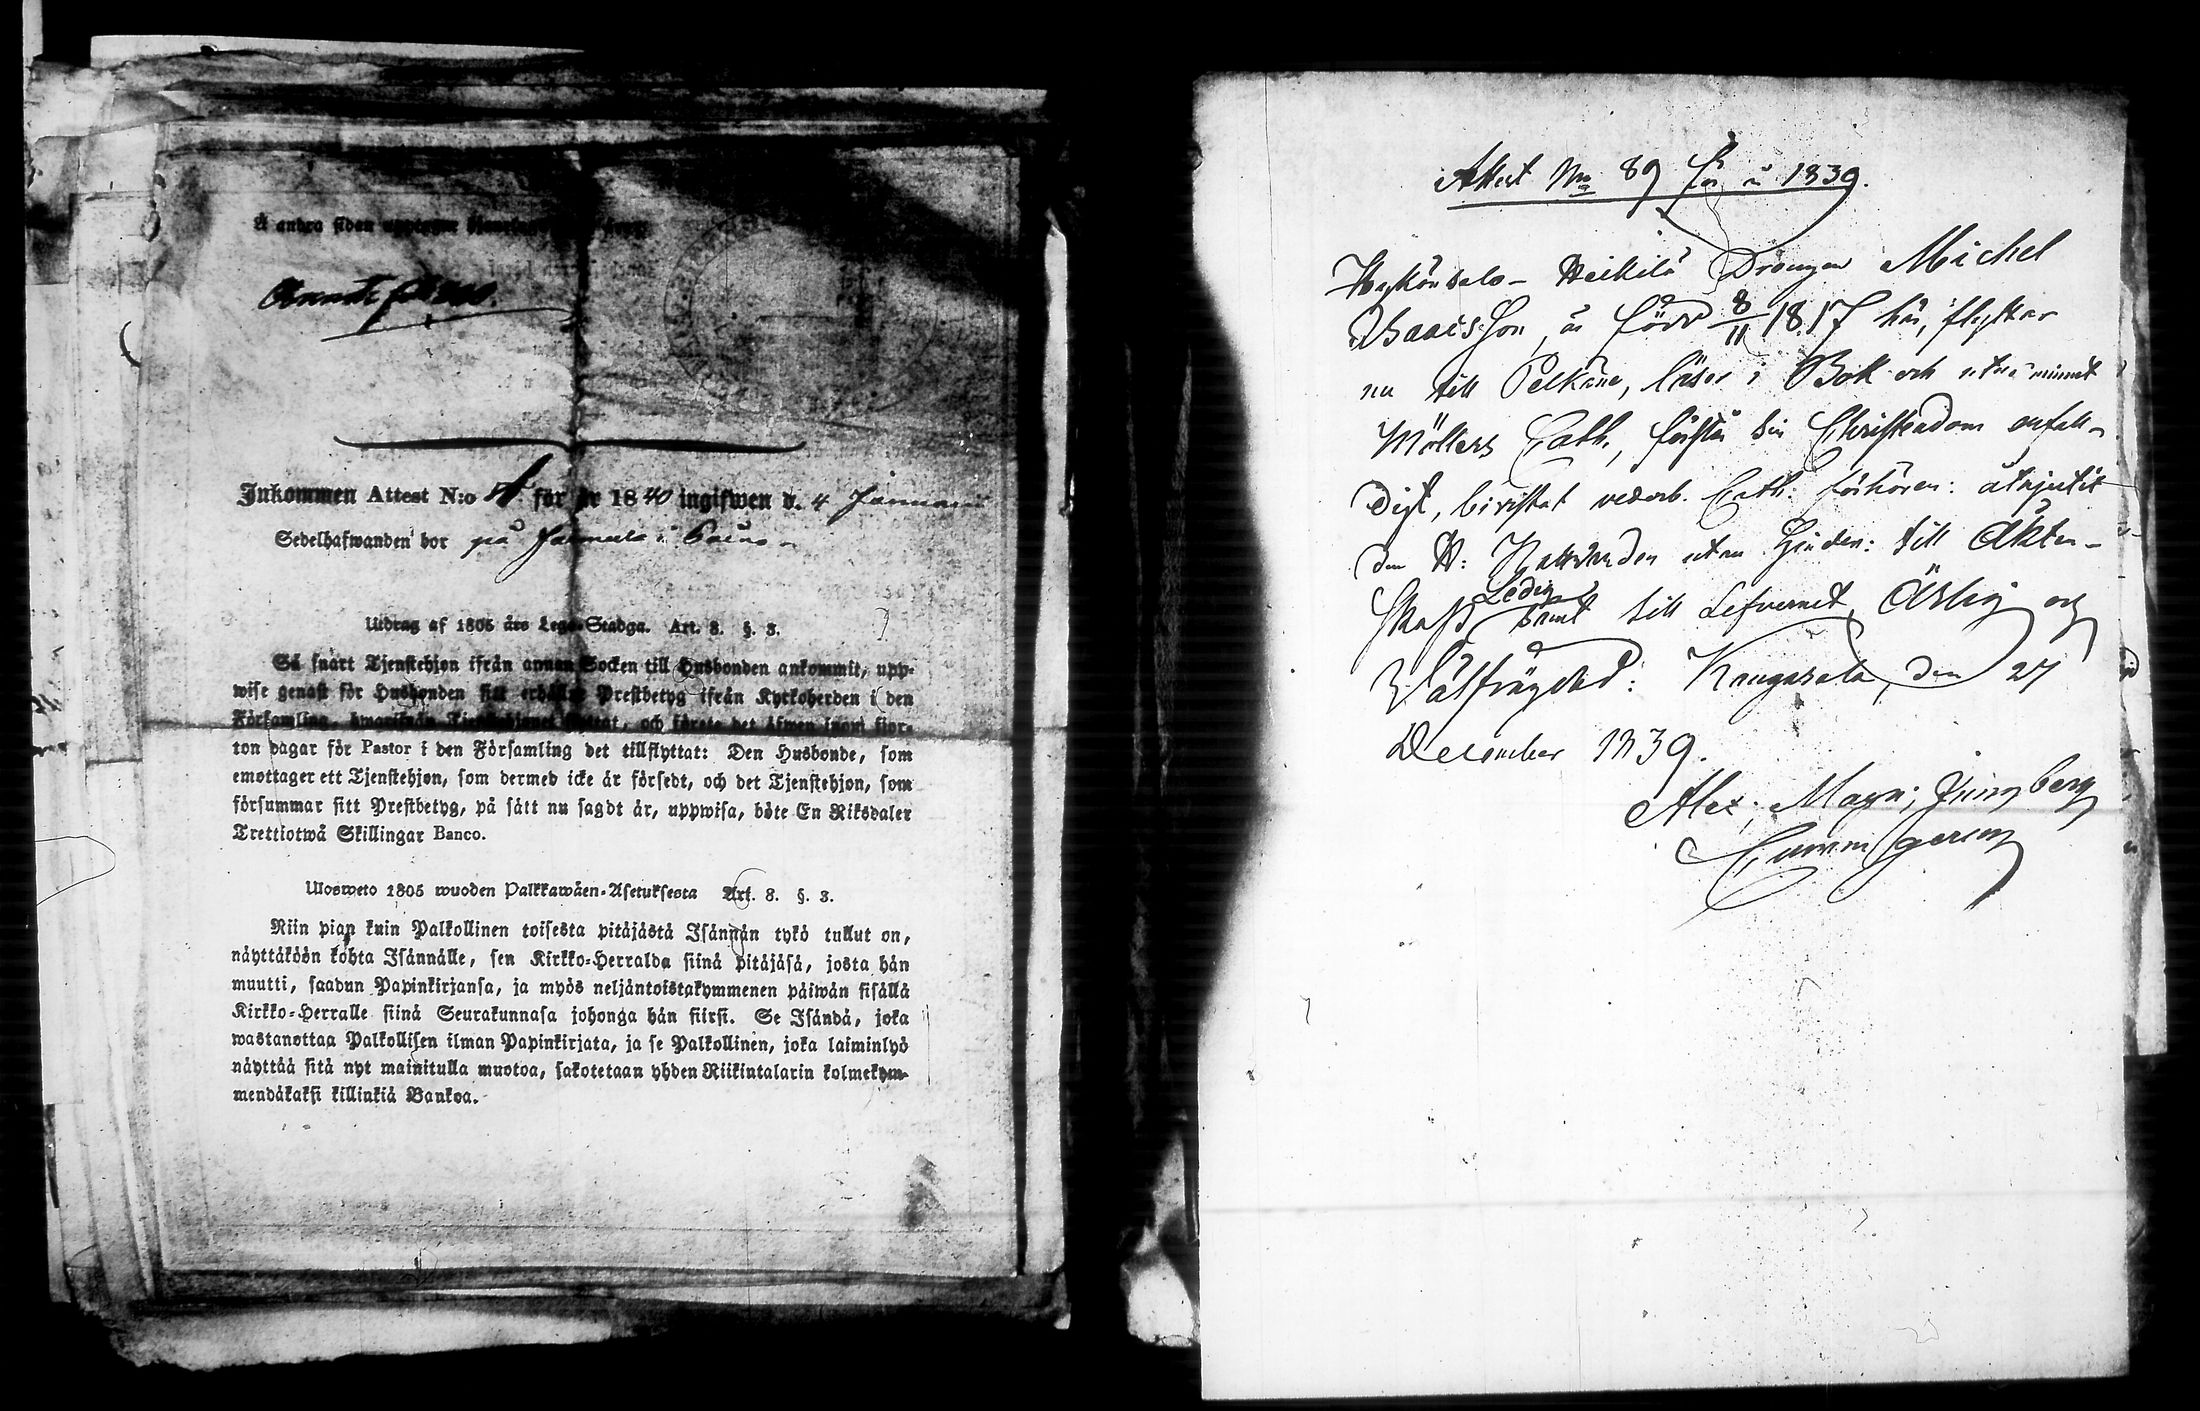 Å andra sidan
Inkommen Attest N:o för år 1840 ingifwen d. 4 Januari
Sedelhafwanden bor på i
Utdrag af 1805 års Lego-Stadga. Art. 8. §. 3.
Så snart Tjenstehjon ifrån annan Socken till Husbonden ankommit, upp-
wise genast för Husbonden sitt erhållne Prestbetyg ifrån Kyrkoherden i den
Församling, hwarifrån Tjenstehjonet flyttat, och förete det äfwen inom fjor-
ton dagar för Pastor i den Församling det tillflyttat: Den Husbonde, som
emottager ett Tjenstehjon, som dermed icke är försedt, och det Tjenstehjon, som
försummar sitt Prestbetyg, på sätt nu sagdt är, uppwisa, böte En Riksdaler
Trettiotwå Skillingar Banco.
Ulosweto 1805 wuoden Palkkawäen-Asetuksesta Art. 8. §. 3.
Niin pian kuin Palkollinen toisesta pitäjästä Isännän tykö tullut on,
näyttäköön kohta Isännälle, sen Kirkko-Herralda siinä pitäjäsä, josta hän
muutti, saadun Papinkirjansa, ja myös neljäntoistakymmenen päiwän sisällä
Kirkko-Herralle siinä Seurakunnasa johonga hän siirsi. Se Isändä, joka
wastanottaa Palkollisen ilman Papinkirjata, ja se Palkollinen, joka laiminlyö
näyttää sitä nyt mainitulla muotoa, sakotetaan yhden Riikintalarin kolmekym-
mendäkaksi killinkiä Bankoa.
Attest No 89 för år 1839.
Heikilä Drängen Michel
Isaacsson, är född 8/11 1817 här, flyttar
nu till Pelkäne, läser i Bok och utur minnet
Möllers Cath., förstår sin Christendom enfall-
digt, bivistat vederb. Cath: förhören: åtnjutit
den H: Nattvarden utan hinder: till Äkten-
skap Ledig samt till Lefvernet Ärlig och
Välfrägdad: Kangasala, den 27
December 1839.
Alex: Magn: Ljungberg